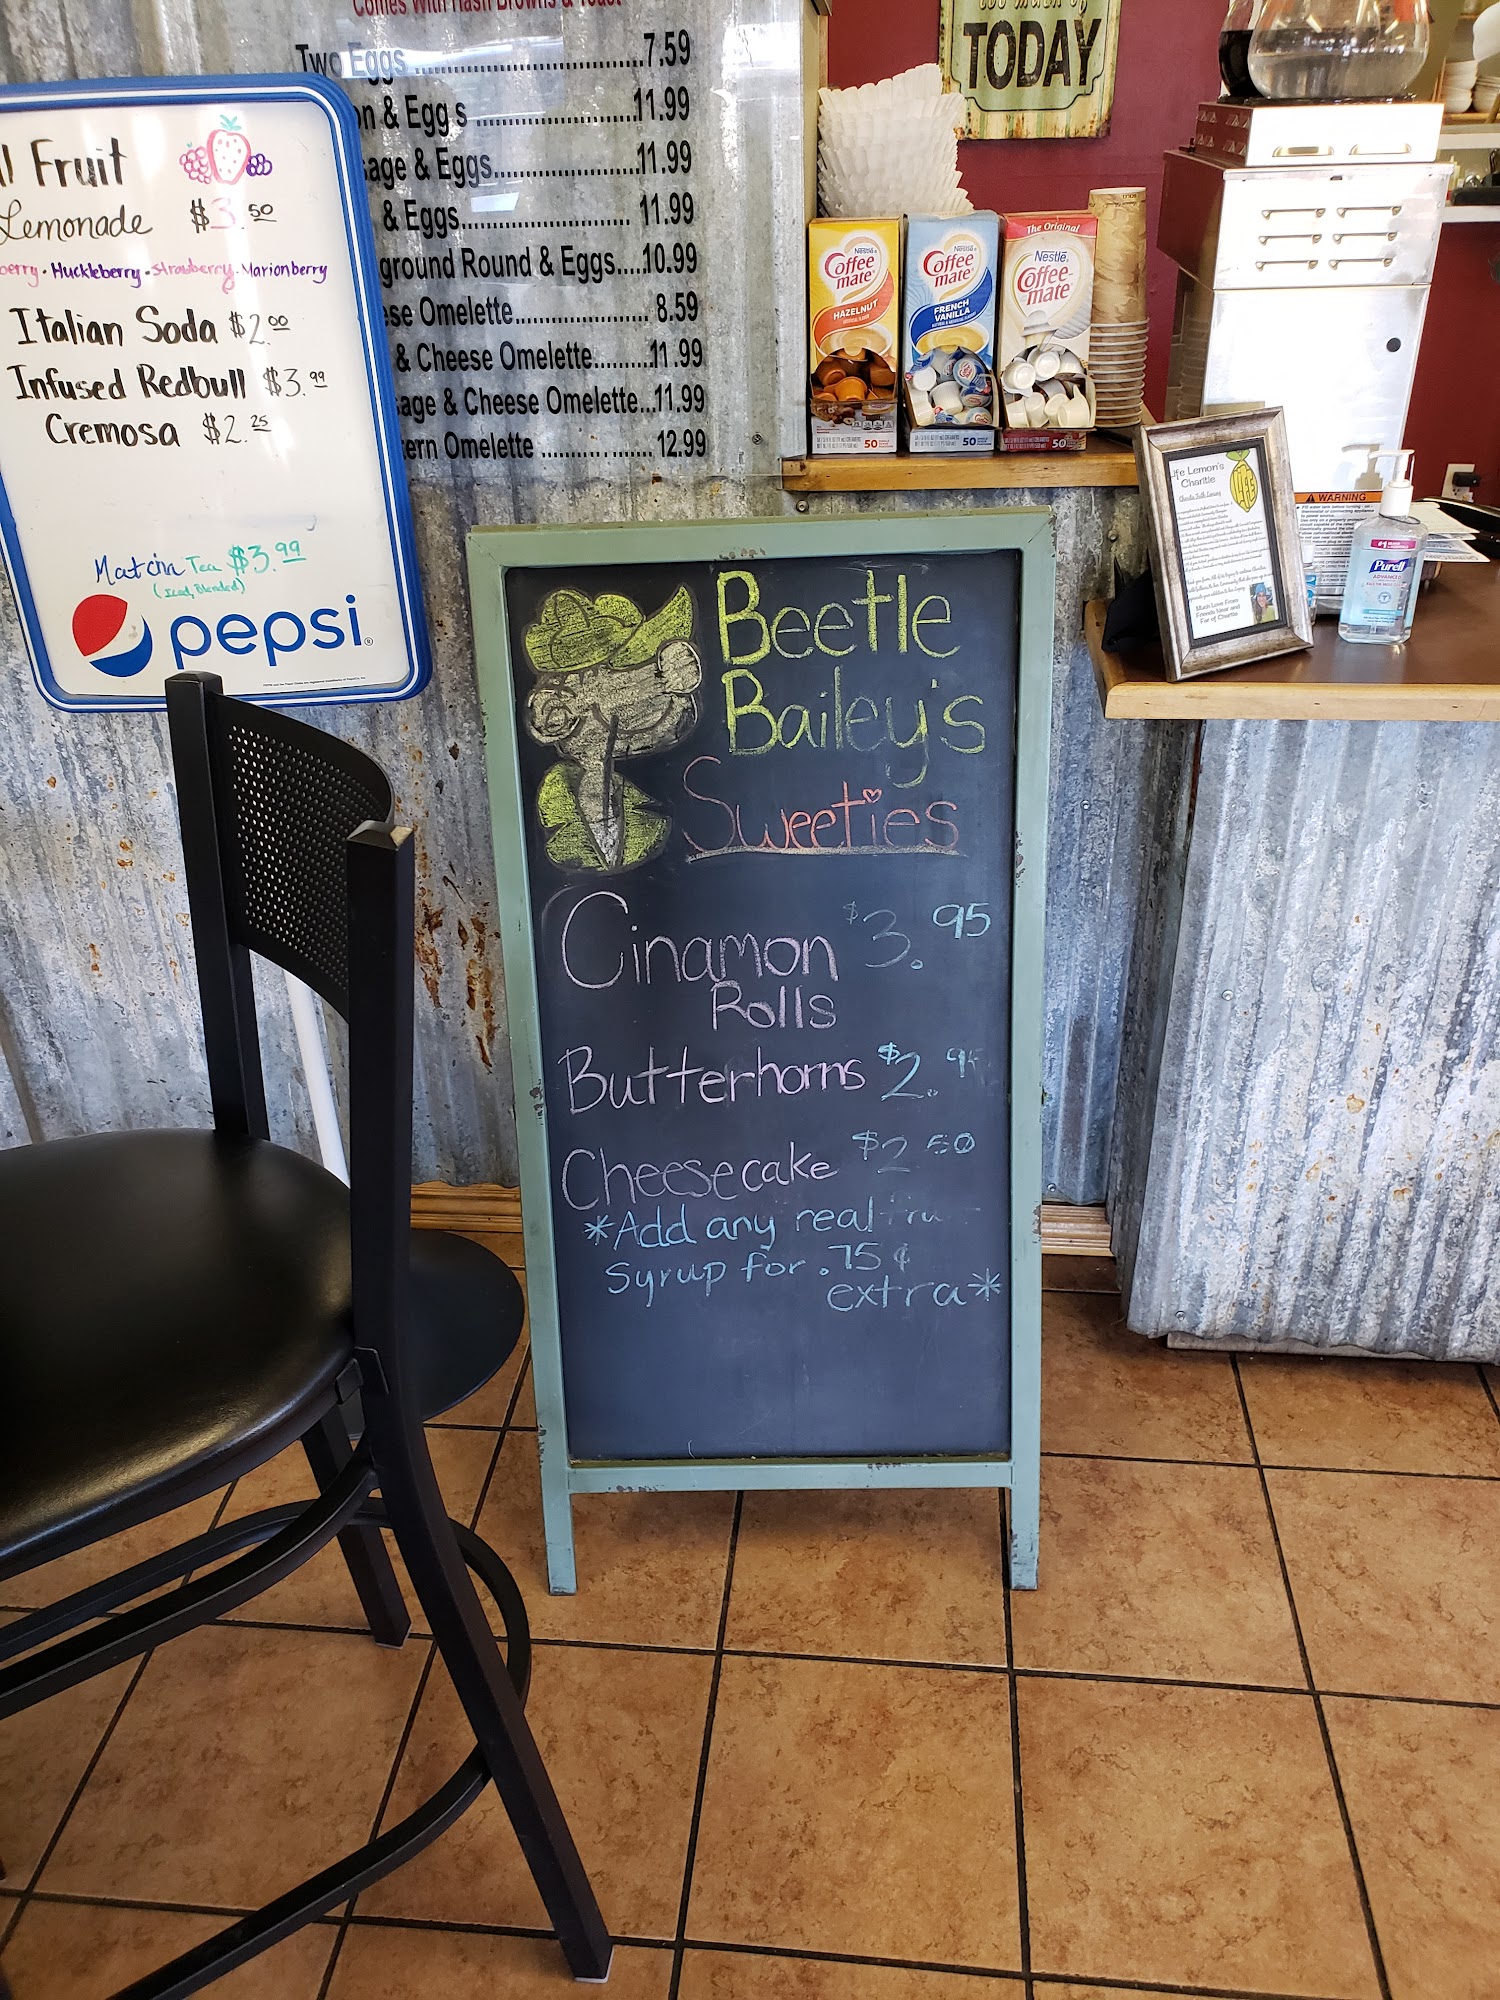 Comes With Hash Browns & Toast
Two Eggs 7.59
& Eggs 11.99
& Eggs 11.99
& Eggs 11.99
Round & Eggs 10.99
Omelette 8.59
& Cheese Omelette 11.99
& Cheese Omelette 11.99
Omelette 12.99
Fruit
Lemonade $3.50
Huckleberry · Strawberry · Marionberry
Italian Soda $2.00
Infused Redbull $3.99
Cremosa $2.25
Matcha Tea $3.99
(Iced, Blended)
pepsi
TODAY
Nestlé
Coffee mate
HAZELNUT
50
Nestlé
Coffee mate
FRENCH VANILLA
50
The Original
Nestlé
Coffee mate
50
Beetle
Bailey's
Sweeties
Cinamon $3.95
Rolls
Butterhorns $2.95
Cheesecake $2.50
*Add any real
Syrup for .75¢
extra*
Lemon's
Charitie
Much Love From
Friends Near and
Far of Charitie
WARNING
Purell
ADVANCED